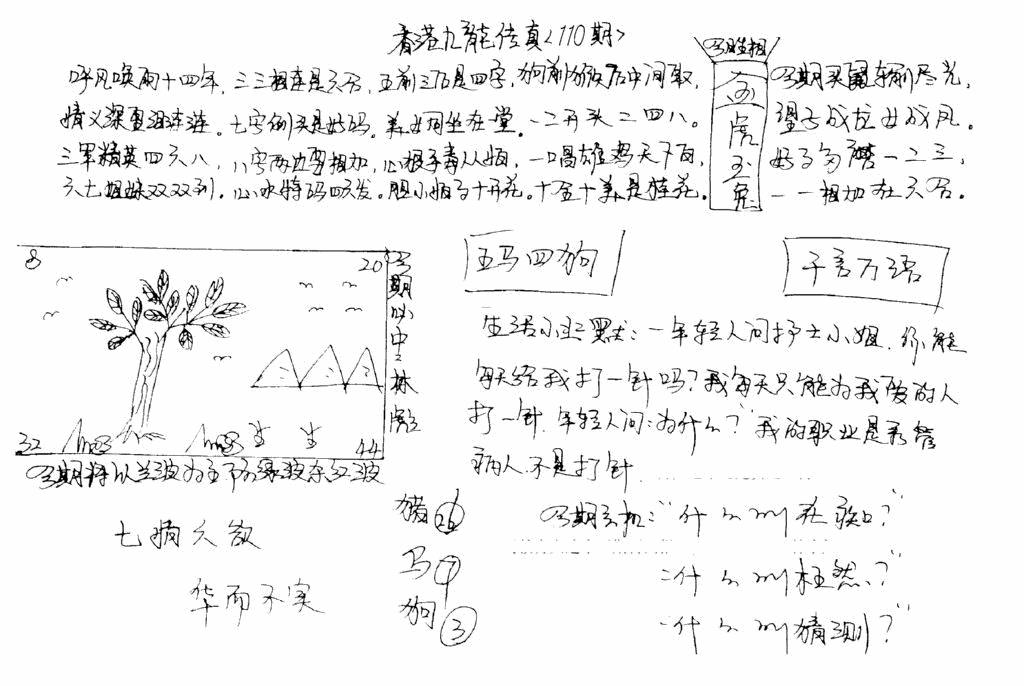 香港九龙传真<110期>
呼风唤雨十四年，三三相连是六合，五前三后是四字，狗前猴后中间取，
情义深重泪涟涟。七字倒头是好码。养女同坐在堂。一二开头二四八。
三军精英四六八，八字两边弯相加，心狠手毒从烟，一唱雄鸡天下白，
六七姐妹双双到。心水特码四六发。胆小怕了十开花。十五十养是桂花。
今期生相
金
虎
玉
兔
今期买鼠车前尽光，
望子成龙女成凤。
好了多磨一二三，
一一相加在六合。
8
20
32
44
今期必中：林彪
今期特以兰波为主下防绿波杂红波
五马四狗
千言万语
生活小幽默：一年轻人问护士小姐，你能
每天给我打一针吗？我每天只能为我爱的人
打一针，年轻人问：为什么？“我的职业是看管
病人，不是打针
今期玄机：“什么叫在家？”
“什么叫枉然？”
“什么叫猜测？”
七情六欲
华而不实
猪 26
马 7
狗 3